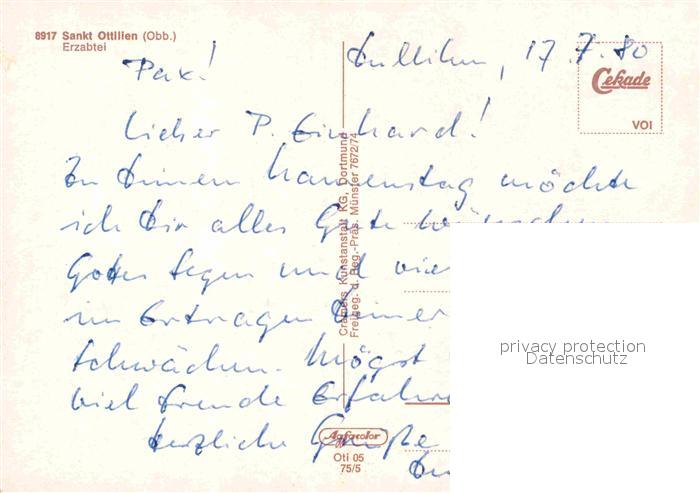 8917 Sankt Ottilien (Obb.)
Erzabtei
Pax!
St. Ottilien, 17.7.80
Cekade
VOI
Lieber P. Einhard!
Zu Deinem Namenstag möchte
ich Dir alles Gute wünschen
Gottes Segen und viel
im Ertragen Deiner
Schwächen. Mögst
viel Freude erfahren
herzliche Grüße
Cramers Kunstanstalt KG, Dortmund
Freigeg. d. Reg.-Präs. Münster 7672/74
privacy protection
Datenschutz
Agfacolor
Oti 05
75/5